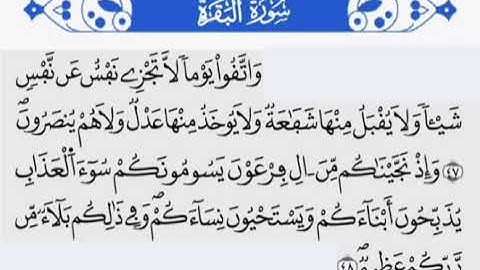 سُورَةُ الْبَقَرَةِ
وَاتَّقُواْ يَوْماٗ لَّا تَجْزِے نَفْسٌ عَن نَّفْسٖ
شَيْـٔاٗ وَلَا يُقْبَلُ مِنْهَا شَفَٰعَةٞ وَلَا يُوخَذُ مِنْهَا عَدْلٞ وَلَا هُمْ يُنصَرُونَۖ
٤٧ وَإِذْ نَجَّيْنَٰكُم مِّنَ اٰلِ فِرْعَوْنَ يَسُومُونَكُمْ سُوٓءَ اَ۬لْعَذَابِ
يُذَبِّحُونَ أَبْنَآءَكُمْ وَيَسْتَحْيُونَ نِسَآءَكُمْۖ وَفِے ذَٰلِكُم بَلَآءٞ مِّن
رَّبِّكُمْ عَظِيمٞۖ ٤٨